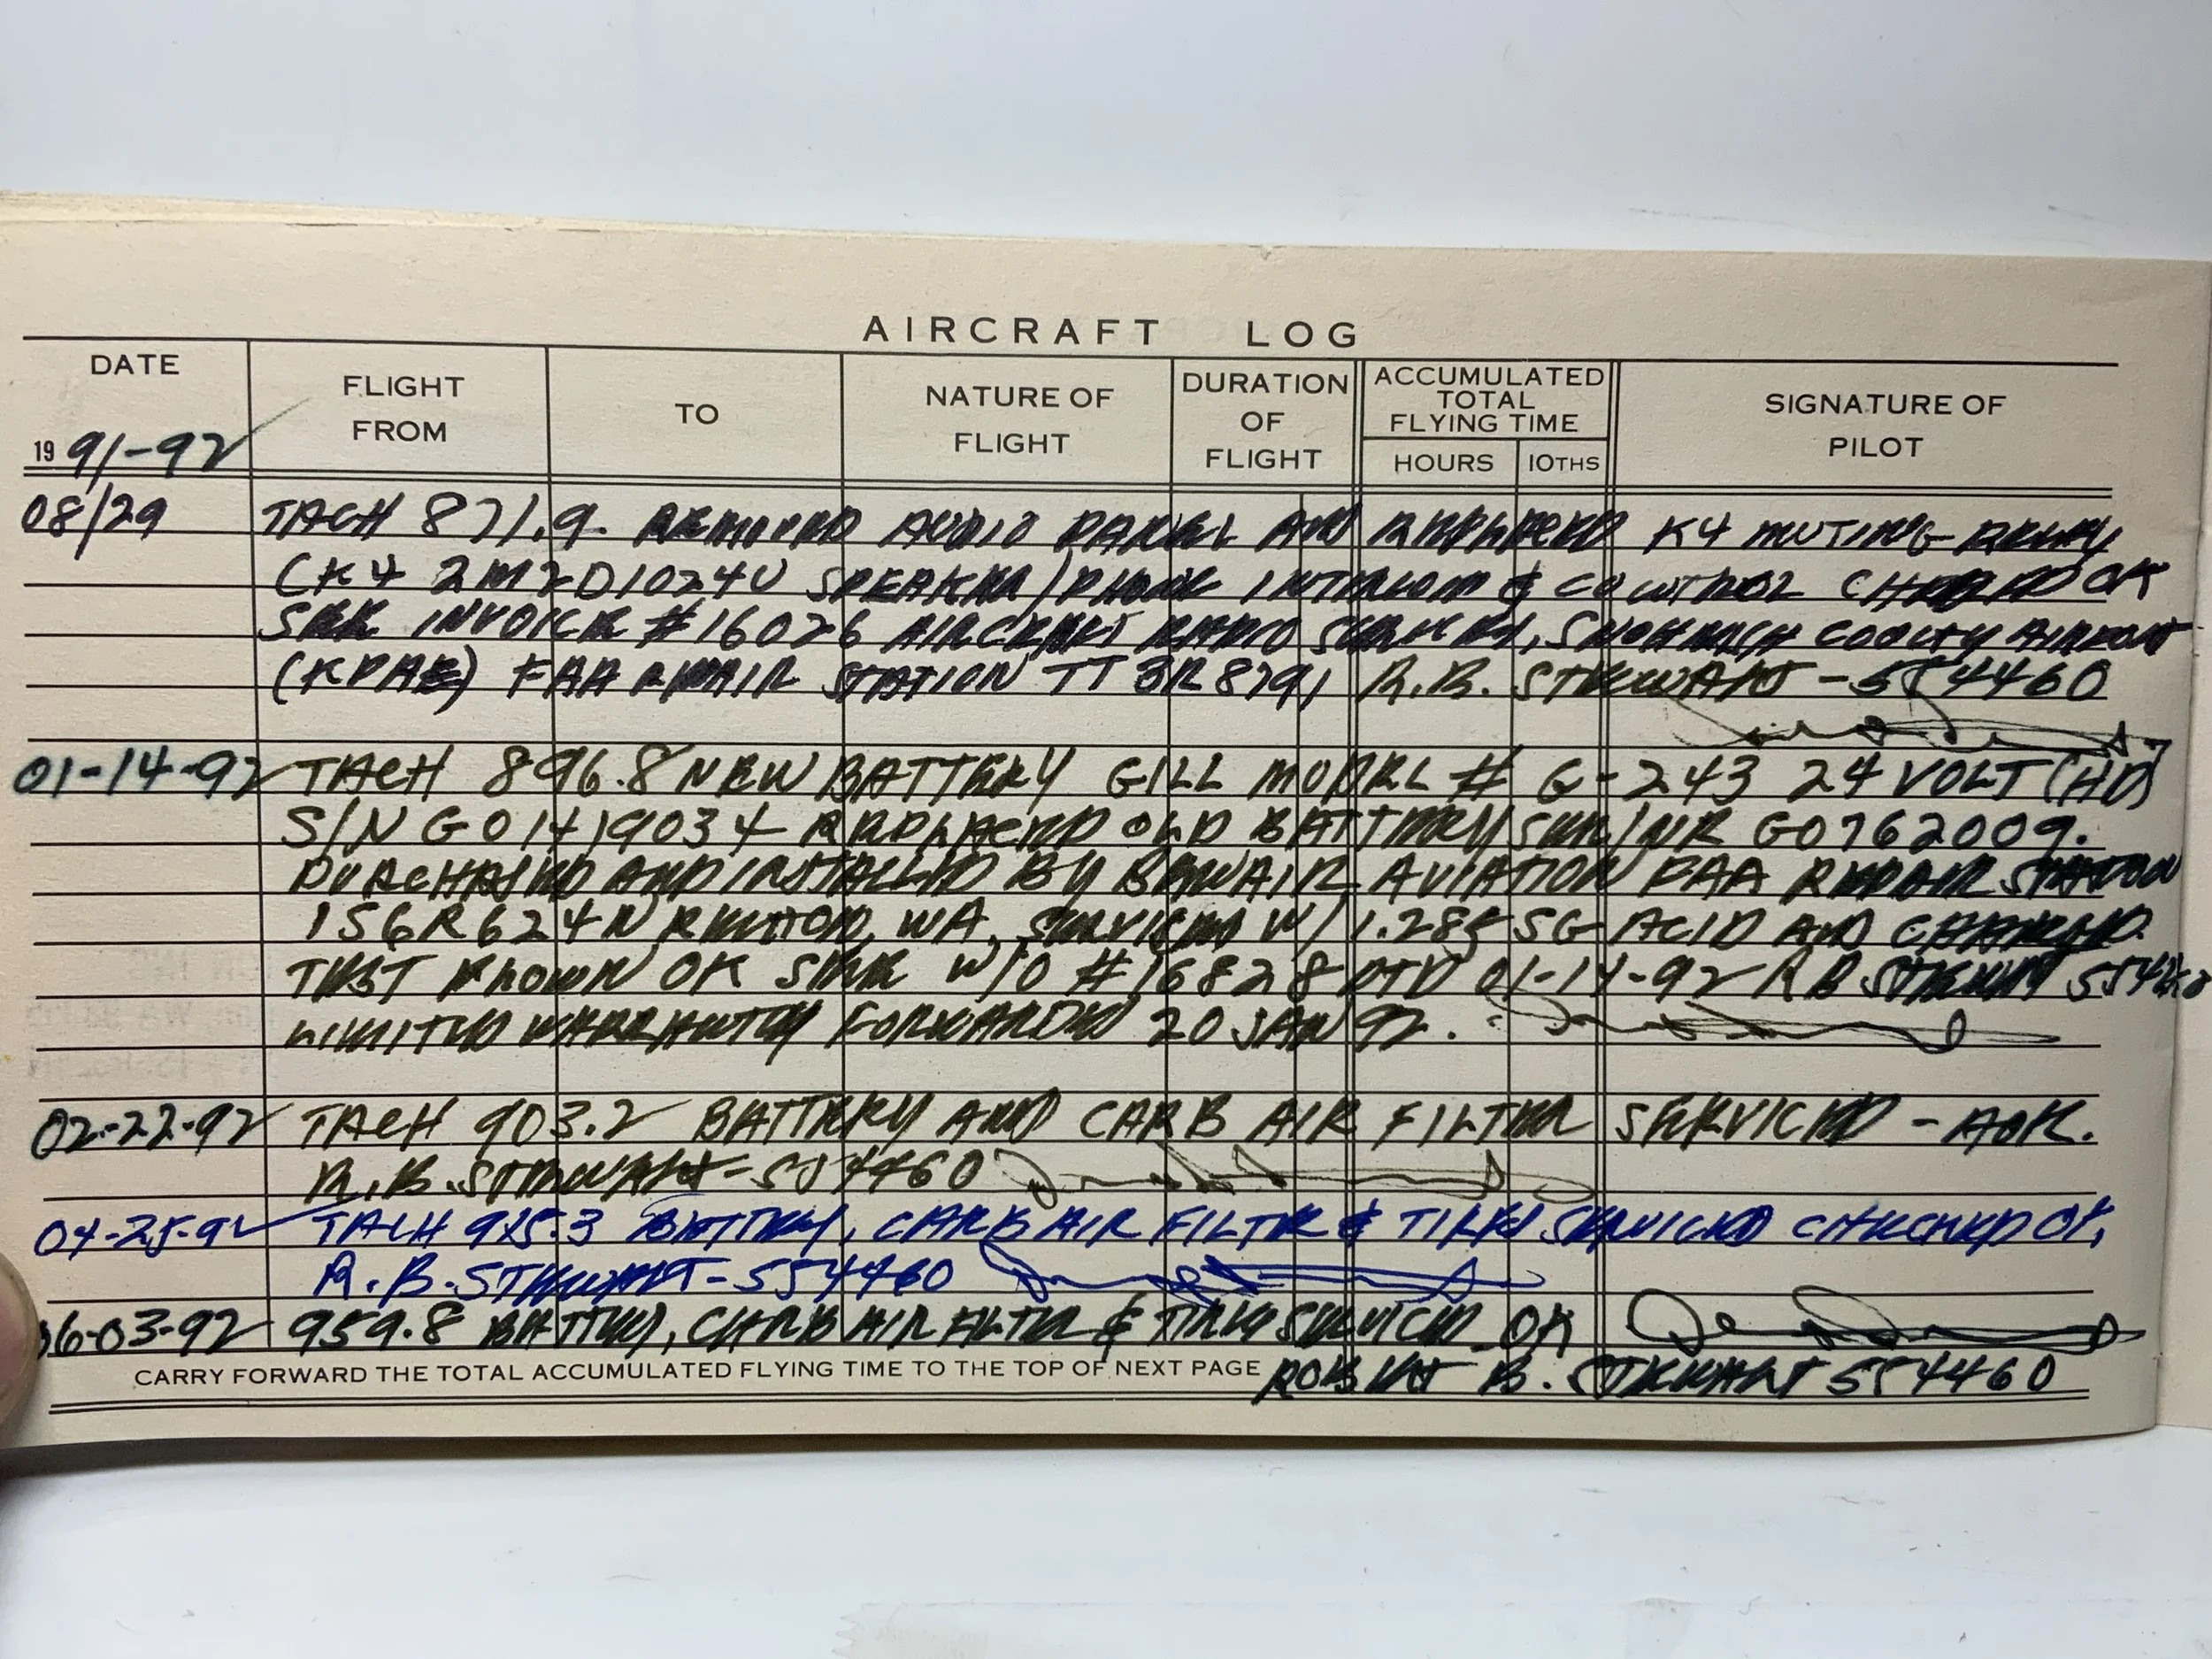 AIRCRAFT LOG
DATE
FLIGHT FROM
TO
NATURE OF FLIGHT
DURATION OF FLIGHT
ACCUMULATED TOTAL FLYING TIME
HOURS
10THS
SIGNATURE OF PILOT
19 91-92
08/29 TACH 871.9. REMOVED AUDIO PANEL AND REPLACED K4 MUTING RELAY
(K4 2M2D1024U SPEAKER/PHONE INTERCOM & CO CONTROL CHECKED OK
SEE INVOICE #16026 AIRCRAFT RADIO SERVICES, SNOHOMISH COUNTY AIRPORT
(KPAE) FAA REPAIR STATION TT3R879, R.B. STEWART - 554460
01-14-92 TACH 896.8 NEW BATTERY GILL MODEL # G-243 24 VOLT (HD)
S/N G01419034 REPLACED OLD BATTERY SER/NR G0762009.
PURCHASED AND INSTALLED BY BENAIR AVIATION FAA REPAIR STATION
156R624N RENTON, WA. SERVICED W/ 1.285 SG ACID AND CHARGED.
TEST FLOWN OK SEE W/O #16828 DTD 01-14-92 R B STEWART 554460
LIMITED WARRANTY FORWARDED 20 JAN 92.
02-22-92 TACH 903.2 BATTERY AND CARB AIR FILTER SERVICED - AOK.
R.B. STEWART - 554460
04-25-92 TACH 925.3 BATTERY, CARB AIR FILTR & TIRES SERVICED CHECKED OK,
R.B. STEWART - 554460
06-03-92 959.8 BATTERY, CARB AIR FILTR & TIRES SERVICED OK
CARRY FORWARD THE TOTAL ACCUMULATED FLYING TIME TO THE TOP OF NEXT PAGE
ROBERT B. STEWART 554460